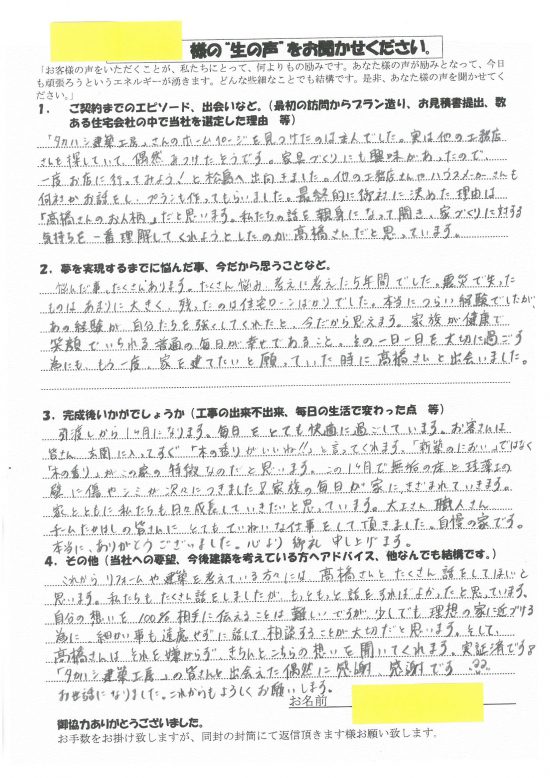 様の"生の声"をお聞かせください。
「お客様の声をいただくことが、私たちにとって、何よりもの励みです。あなた様の声が励みとなって、今日
も頑張ろうというエネルギーが湧きます。どんな些細なことでも結構です。是非、あなた様の声を聞かせてく
ださい。」
1. ご契約までのエピソード、出会いなど。（最初の訪問からプラン造り、お見積書提出、数
ある住宅会社の中で当社を選定した理由　等）
「タカハシ建築工房」さんのホームページを見つけたのは主人でした。実は他の工務店
さんを探していて、偶然みつけたそうです。家具づくりにも興味があったので、
一度お店に行ってみよう！と松島へ出向きました。他の工務店さんやハウスメーカーさんも
何社かお話をし、プランも作ってもらいました。最終的に御社に決めた理由は
「高橋さんのお人柄」だと思います。私たちの話を親身になって聞き、家づくりに対する
気持ちを一番理解してくれようとしたのが高橋さんだと思っています。
2. 夢を実現するまでに悩んだ事、今だから思うことなど。
悩んだ事、たくさんあります。たくさん悩み、考えに考えた5年間でした。震災で失った
ものはあまりに大きく、残ったのは住宅ローンばかりでした。本当につらい経験でしたが、
あの経験が、自分たちを強くしてくれたと、今だから思えます。家族が健康で
笑顔でいられる普通の毎日が幸せであること、その一日一日を大切に過ごす
為にも、もう一度、家を建てたいと願っていた時に高橋さんと出会いました。
3. 完成後いかがでしょうか（工事の出来不出来、毎日の生活で変わった点　等）
引渡しから1ヶ月になります。毎日をとても快適に過ごしています。お客さんは
皆さん玄関に入ってすぐ「木の香りがいいね!!」と言ってくれます。「新築のにおい」ではなく
「木の香り」がこの家の特徴なのだと思います。この1ヶ月で無垢の床と珪藻土の
壁に傷やシミが次々につきました。家族の毎日が家にきざまれていきます。
家とともに私たちも日々成長していきたいと思っています。大工さん、職人さん
チームたかはしの皆さんにとてもていねいな仕事をして頂きました。自慢の家です。
本当に、ありがとうございました。心より御礼申し上げます。
4. その他（当社への要望、今後建築を考えている方へアドバイス、他なんでも結構です。）
これからリフォームや建築を考えている方々には高橋さんとたくさん話をしてほしいと
思います。私たちもたくさん話をしましたが、もっともっと話をすればよかったと思っています。
自分の想いを100%相手に伝えることは難しいですが、少しでも理想の家に近づける
為に細かい事も遠慮せずに話して相談することが大切だと思います。そして、
高橋さんは、それを嫌がらず、きちんとこちらの想いを聞いてくれます。実証済です
「タカハシ建築工房」の皆さんと出会えた偶然に感謝　感謝です
お世話になりました。これからもよろしくお願いします。
お名前
御協力ありがとうございました。
お手数をお掛け致しますが、同封の封筒にて返信頂きます様お願い致します。